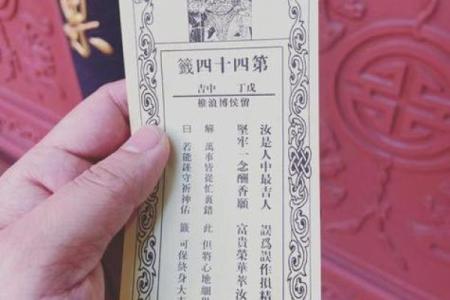 第四十四籤
戊丁 中吉
留侯博浪椎
汝是人中最吉人 誤爲誤作損精
堅牢一念酬香願 富貴榮華萃汝
解 萬事皆從忙裏錯 此 但將心地細
曰 若能謹守祈神佑 籤 可保終身大